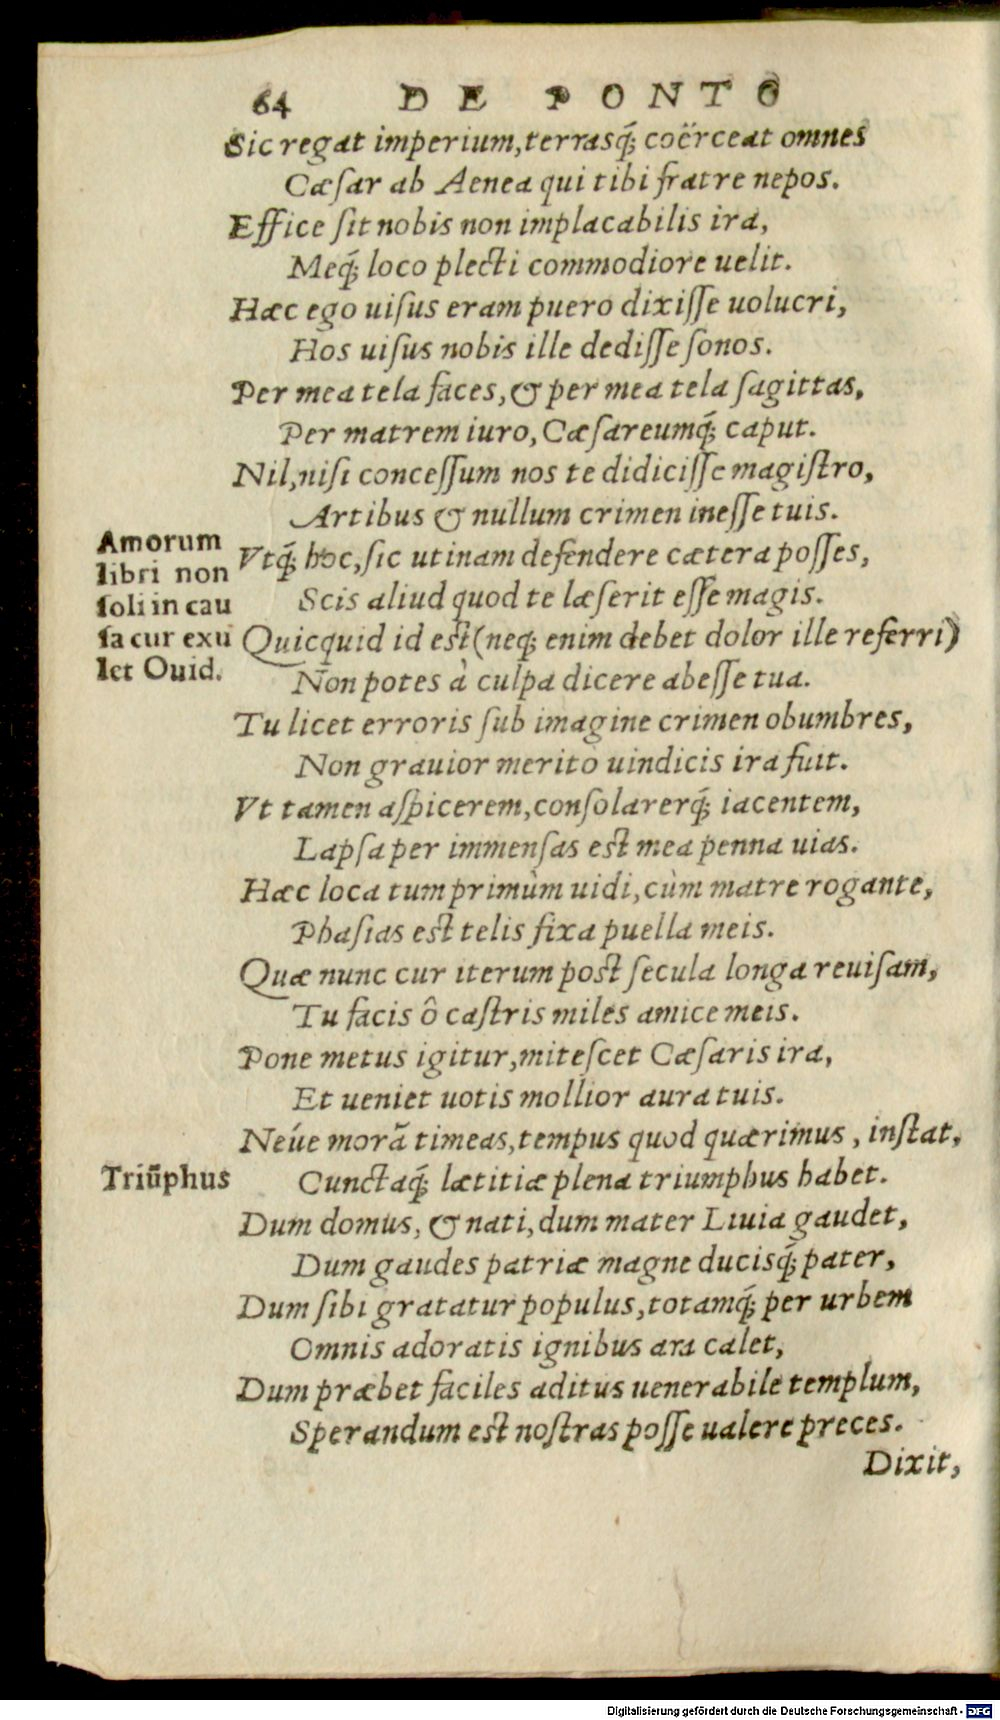 64 DE PONTO
Sic regat imperium, terrasq́; coërceat omnes
Cæſar ab Aenea qui tibi fratre nepos.
Effice ſit nobis non implacabilis ira,
Meq́; loco plecti commodiore uelit.
Hæc ego uiſus eram puero dixiſſe uolucri,
Hos uiſus nobis ille dediſſe ſonos.
Per mea tela faces, & per mea tela ſagittas,
Per matrem iuro, Cæſareumq́; caput.
Nil, niſi conceſſum nos te didiciſſe magiſtro,
Artibus & nullum crimen ineſſe tuis.
Amorum
libri non
ſoli in cau
ſa cur exu
let Ouid.
Vtq́; hoc, ſic utinam defendere cætera poſſes,
Scis aliud quod te læſerit eſſe magis.
Quicquid id eſt (neq; enim debet dolor ille referri)
Non potes à culpa dicere abeſſe tua.
Tu licet erroris ſub imagine crimen obumbres,
Non grauior meritò uindicis ira fuit.
Vt tamen aſpicerem, conſolarerq́; iacentem,
Lapſa per immenſas eſt mea penna uias.
Hæc loca tum primùm uidi, cùm matre rogante,
Phaſias eſt telis fixa puella meis.
Quæ nunc cur iterum poſt ſecula longa reuiſam,
Tu facis ô caſtris miles amice meis.
Pone metus igitur, miteſcet Cæſaris ira,
Et ueniet uotis mollior aura tuis.
Néue morā timeas, tempus quod quærimus, inſtat,
Triūphus
Cunctaq́; lætitiæ plena triumphus habet.
Dum domus, & nati, dum mater Liuia gaudet,
Dum gaudes patriæ magne ducisq́; pater,
Dum ſibi gratatur populus, totamq́; per urbem
Omnis adoratis ignibus ara calet,
Dum præbet faciles aditus uenerabile templum,
Sperandum eſt noſtras poſſe ualere preces.
Dixit,
Digitalisierung gefördert durch die Deutsche Forschungsgemeinschaft - DFG